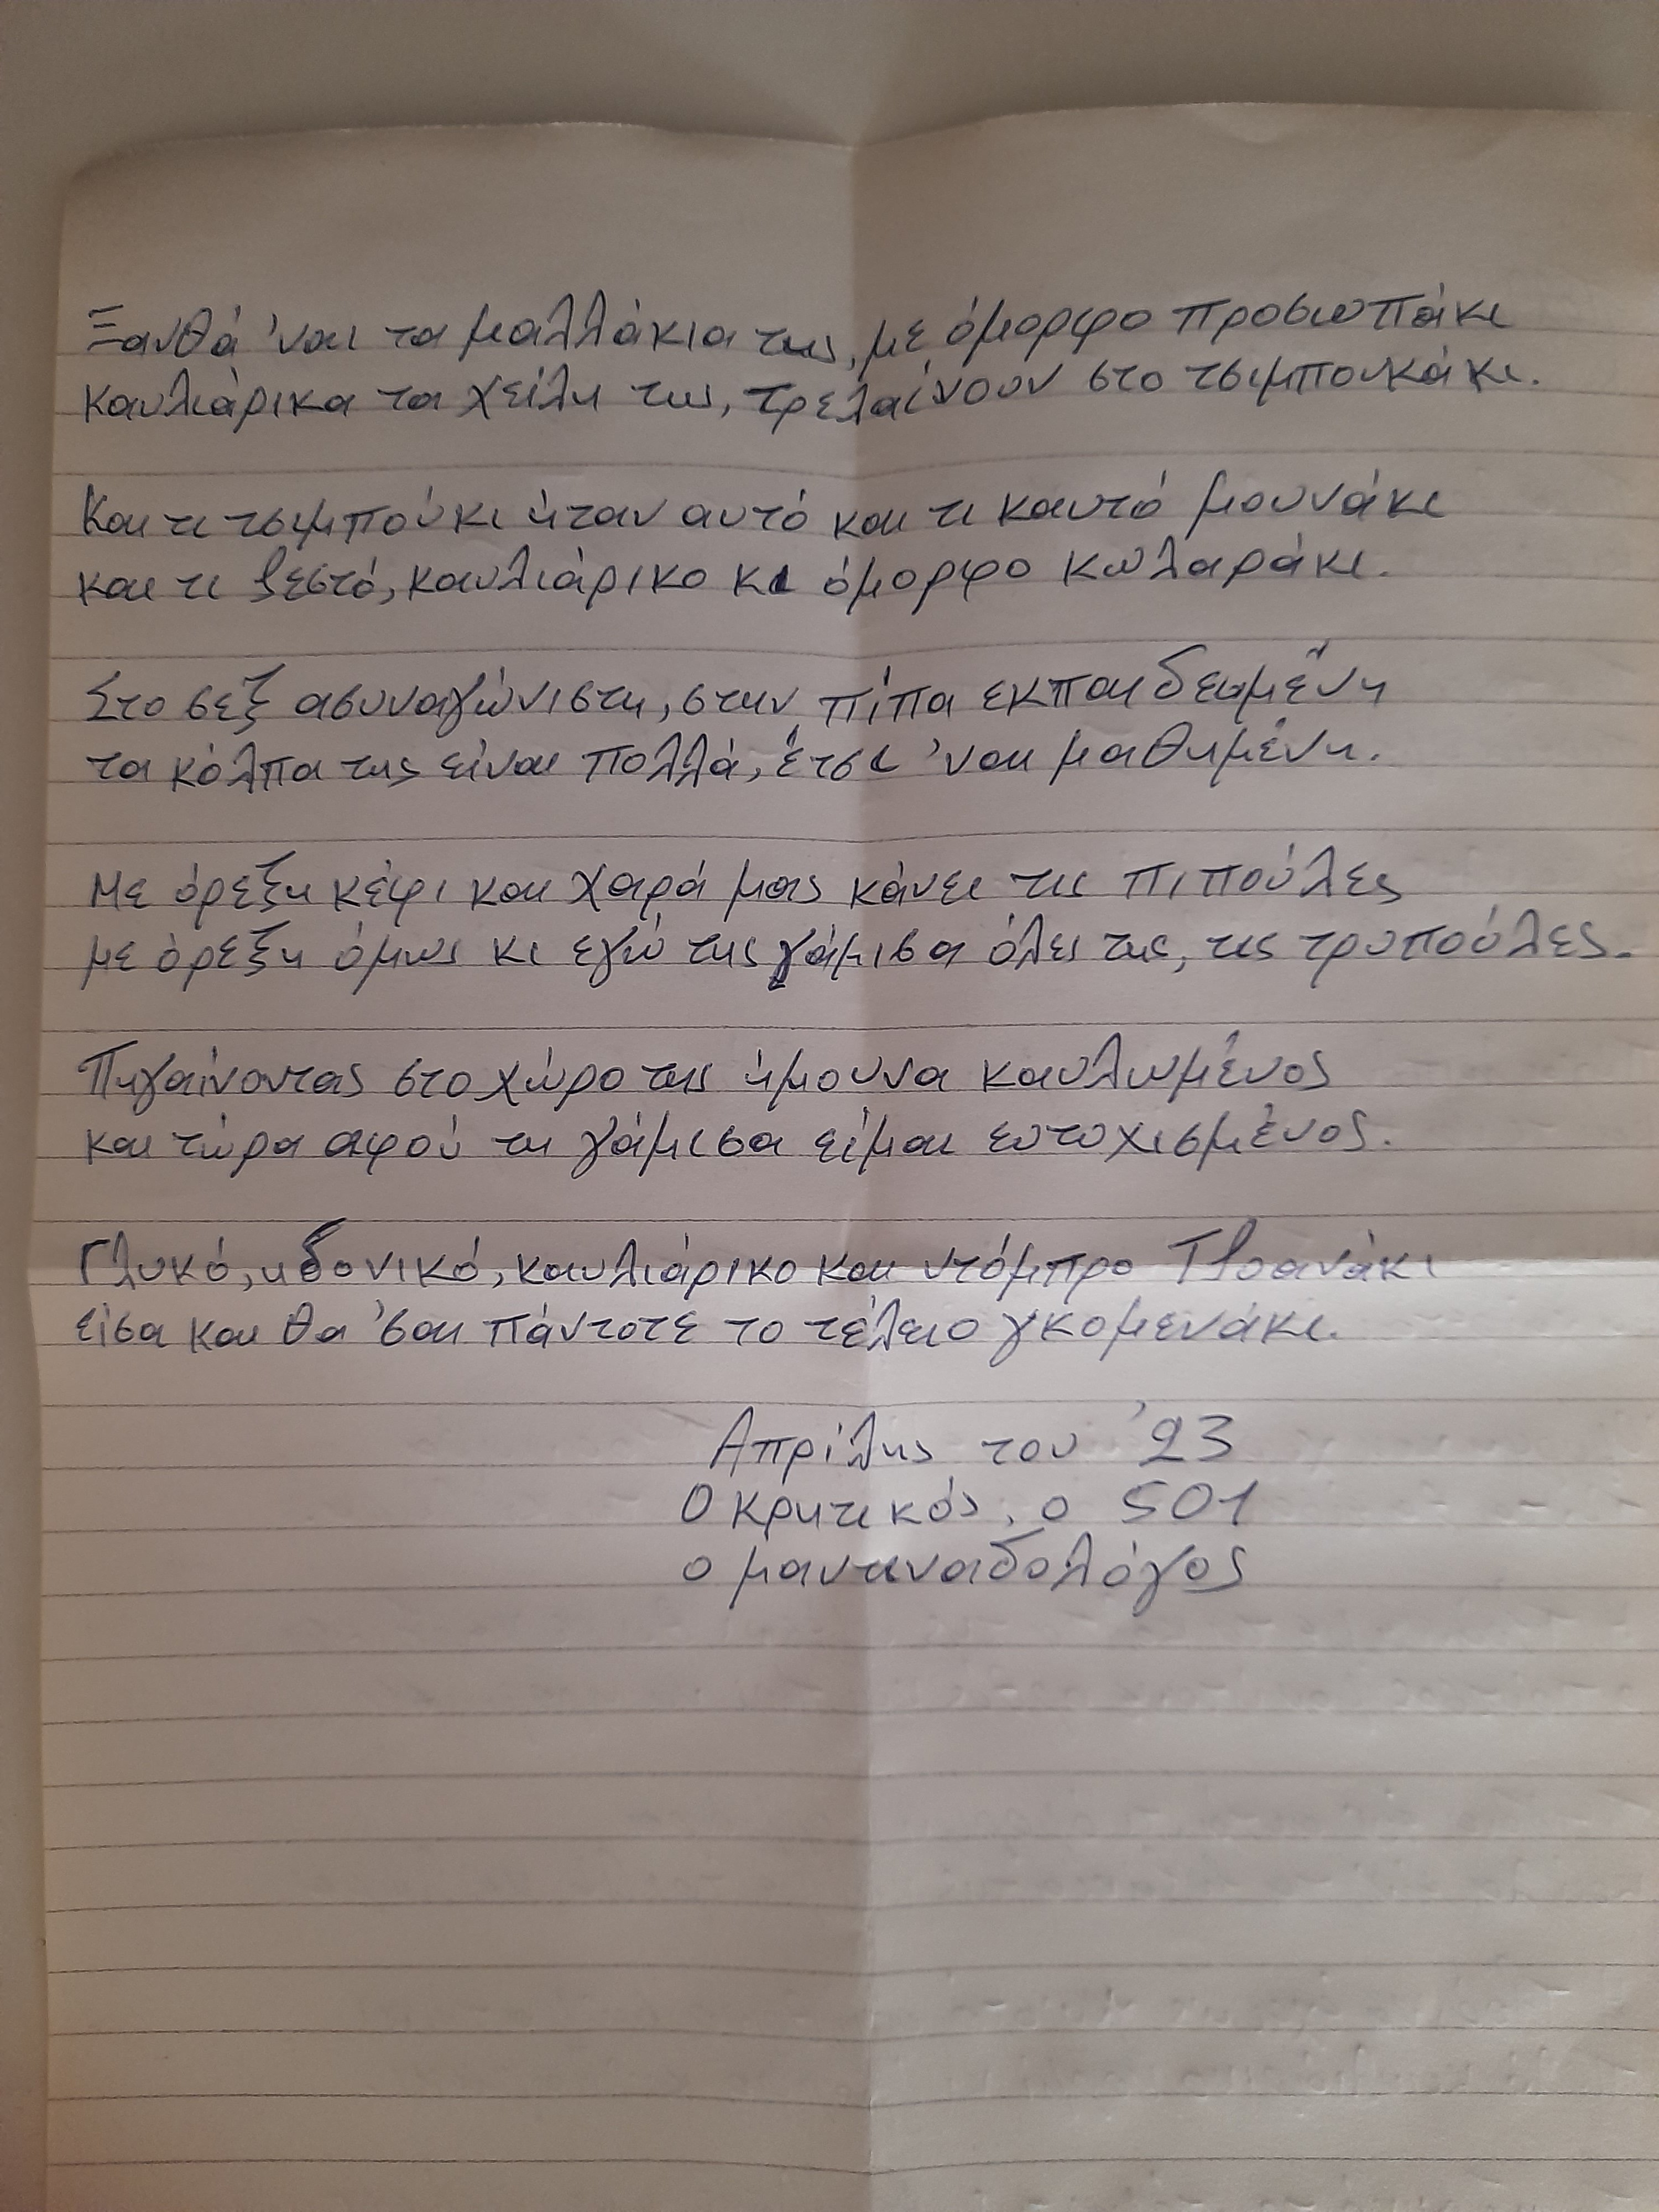 Ξανθά 'ναι τα μαλλάκια της, με όμορφο προσωπάκι
καυλιάρικα τα χείλη της, τρελαίνουν στο τσιμπουκάκι.
Και τι τσιμπούκι ήταν αυτό και τι καυτό μουνάκι
και τι ζεστό, καυλιάρικο κι όμορφο κωλαράκι.
Στο σεξ ασυναγώνιστη, στην πίπα εκπαιδευμένη
τα κόλπα της είναι πολλά, έτσι 'ναι μαθημένη.
Με όρεξη κέφι και χαρά μας κάνει τις πιπούλες
με όρεξη όμως κι εγώ της γάμισα όλες της, τις τρυπούλες.
Πηγαίνοντας στο χώρο της ήμουνα καυλωμένος
και τώρα αφού τη γάμισα είμαι ευτυχισμένος.
Γλυκό, ηδονικό, καυλιάρικο και ντόμπρο Τζοανάκι
είσαι και θα 'σαι πάντοτε το τέλειο γκομενάκι.
Απρίλης του '23
Ο Κρητικός, ο 501
ο μαντιναδολόγος